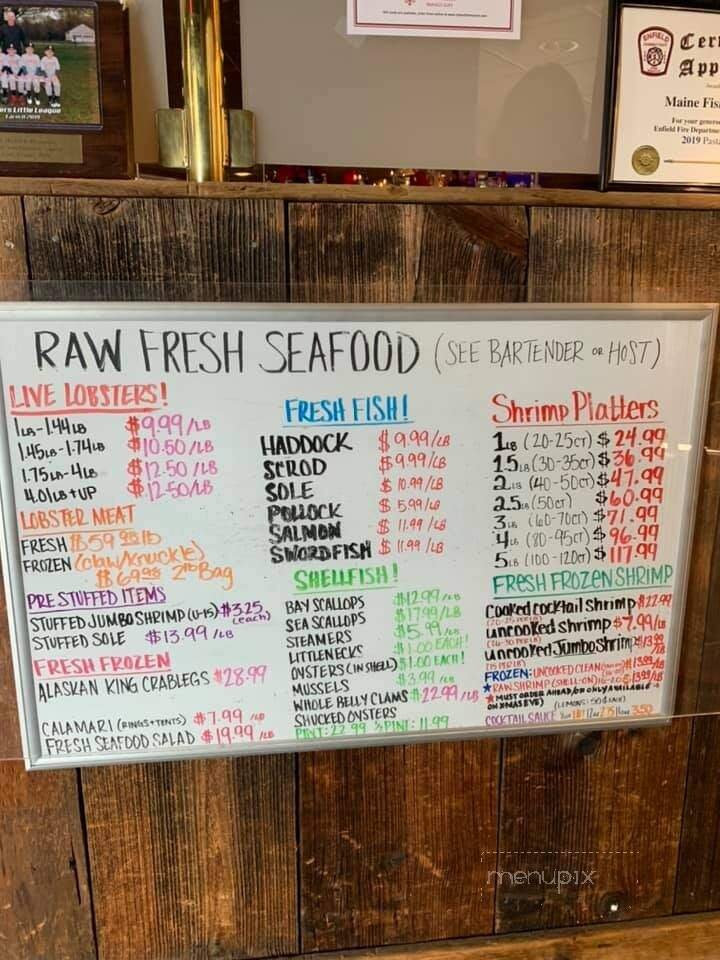 ers Little League
ENFIELD
Cer
App
Maine Fis
For your genero
Enfield Fire Departm
2019 Pasta
RAW FRESH SEAFOOD (SEE BARTENDER OR HOST)
LIVE LOBSTERS!
1LB-1.44LB $9.99/LB
1.45LB-1.74LB $10.50/LB
1.75LB-4LB $12.50/LB
4.01LB+UP $12.50/LB
LOBSTER MEAT
FRESH $59.98 lb
FROZEN (claw/knuckle)
$69.98 2lb Bag
PRE STUFFED ITEMS
STUFFED JUMBO SHRIMP (U-15) $3.25 (each)
STUFFED SOLE $13.99/LB
FRESH FROZEN
ALASKAN KING CRABLEGS $28.99
CALAMARI (RINGS+TENTS) $7.99/LB
FRESH SEAFOOD SALAD $19.99/LB
FRESH FISH!
HADDOCK $9.99/LB
SCROD $9.99/LB
SOLE $10.99/LB
POLLOCK $5.99/LB
SALMON $11.99/LB
SWORDFISH $11.99/LB
SHELLFISH!
BAY SCALLOPS $12.99/LB
SEA SCALLOPS $17.99/LB
STEAMERS $5.99/LB
LITTLENECKS $1.00 EACH!
OYSTERS (IN SHELL) $1.00 EACH!
MUSSELS $3.99/LB
WHOLE BELLY CLAMS $22.99/LB
SHUCKED OYSTERS
PINT: 22.99 ½ PINT: 11.99
Shrimp Platters
1LB (20-25CT) $24.99
1.5LB (30-35CT) $36.99
2LB (40-50CT) $47.99
2.5LB (50CT) $60.99
3LB (60-70CT) $71.99
4LB (80-95CT) $96.99
5LB (100-120CT) $117.99
FRESH FROZEN SHRIMP
Cooked cocktail shrimp $22.99
uncooked shrimp $7.99/LB
Uncooked Jumbo Shrimp $13.99
FROZEN: UNCOOKED CLEAN
★RAW SHRIMP (SHELL-ON)
★MUST ORDER AHEAD/OR ONLY AVAILABLE
ON XMAS EVE)
(LEMONS: 50¢ EACH)
COCKTAIL SAUCE 3.50
menupix